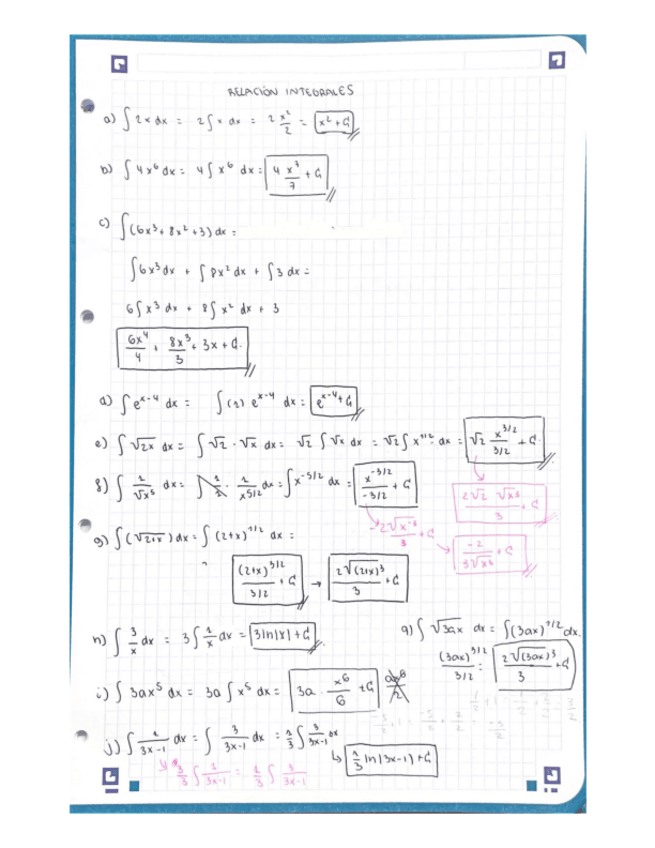 RELACIÓN INTEGRALES
a) ∫ 2x dx = 2∫ x dx = 2 x²/2 = x² + C
b) ∫ 4x⁶ dx = 4∫ x⁶ dx = 4 x⁷/7 + C
c) ∫(6x³ + 8x² + 3) dx =
∫6x³ dx + ∫ 8x² dx + ∫3 dx =
6∫ x³ dx + 8∫ x² dx + 3
6x⁴/4 + 8x³/3 + 3x + C
d) ∫ e^(x-4) dx = ∫(1) e^(x-4) dx = e^(x-4) + C
e) ∫ √2x dx = ∫ √2 · √x dx = √2 ∫ √x dx = √2 ∫ x^(1/2) dx = √2 x^(3/2)/(3/2) + C
2√2 √x³/3 + C
f) ∫ 1/√x⁵ dx = ∫ 1/x^(5/2) dx = ∫ x^(-5/2) dx = x^(-3/2)/(-3/2) + C
-2√x⁻³/3 + C
-2/(3√x³) + C
g) ∫(√2+x) dx = ∫ (2+x)^(1/2) dx =
(2+x)^(3/2)/(3/2) + C → 2√(2+x)³/3 + C
h) ∫ 3/x dx = 3∫ 1/x dx = 3 ln|x| + C
q) ∫ √3ax dx = ∫(3ax)^(1/2) dx
(3ax)^(3/2)/(3/2) = 2√(3ax)³/3 + C
i) ∫ 3ax⁵ dx = 3a ∫ x⁵ dx = 3a · x⁶/6 + C
j) ∫ 1/(3x-1) dx = ∫ 3/(3x-1) dx = 1/3 ∫ 3/(3x-1) dx
↳ 1/3 ln|3x-1| + C
3/3 ∫ 1/(3x-1) = 1/3 ∫ 3/(3x-1)